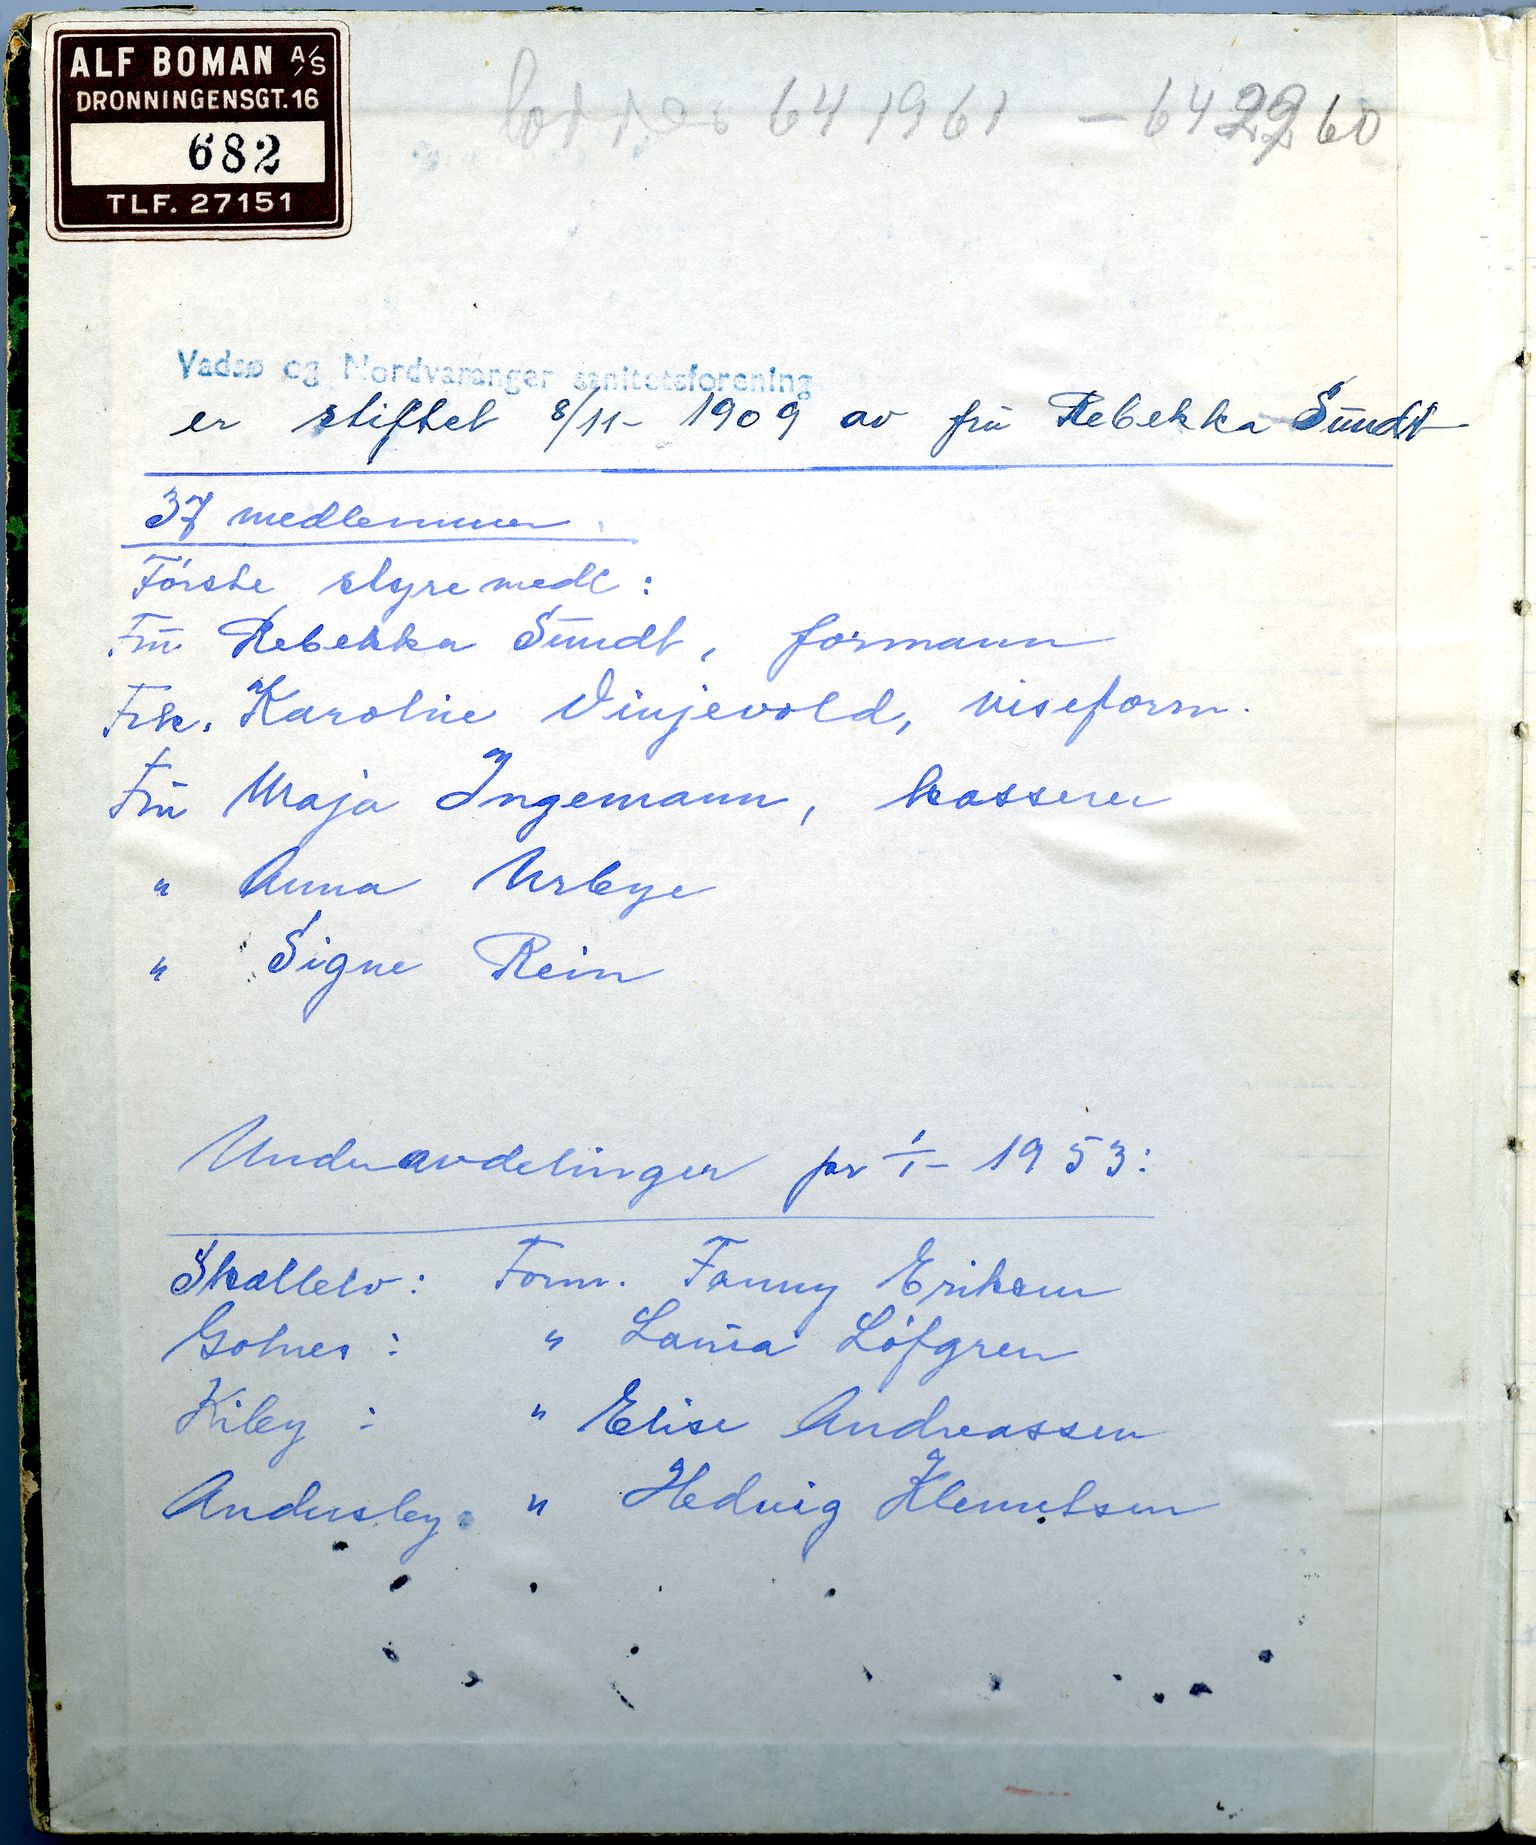 ALF BOMAN A/S
DRONNINGENSGT. 16
682
TLF. 27151
641961 - 642260
Vadsø og Nordvaranger sanitetsforening
er stiftet 8/11- 1909 av frú Rebekka Sundt
37 medlemmer.
Første styremedl:
Frú Rebekka Sundt, formann
Frk. Karoline Vinjevold, viseform.
Frú Maja Ingemann, kasserer
" Anna Urbye
" Signe Rein
Underavdelinger pr 1/1- 1953:
Skallelv: Form. Fanny Eriksen
Golnes: " Laura Löfgren
Kiby: " Elise Andreassen
Andersby: " Hedvig Klemetsen